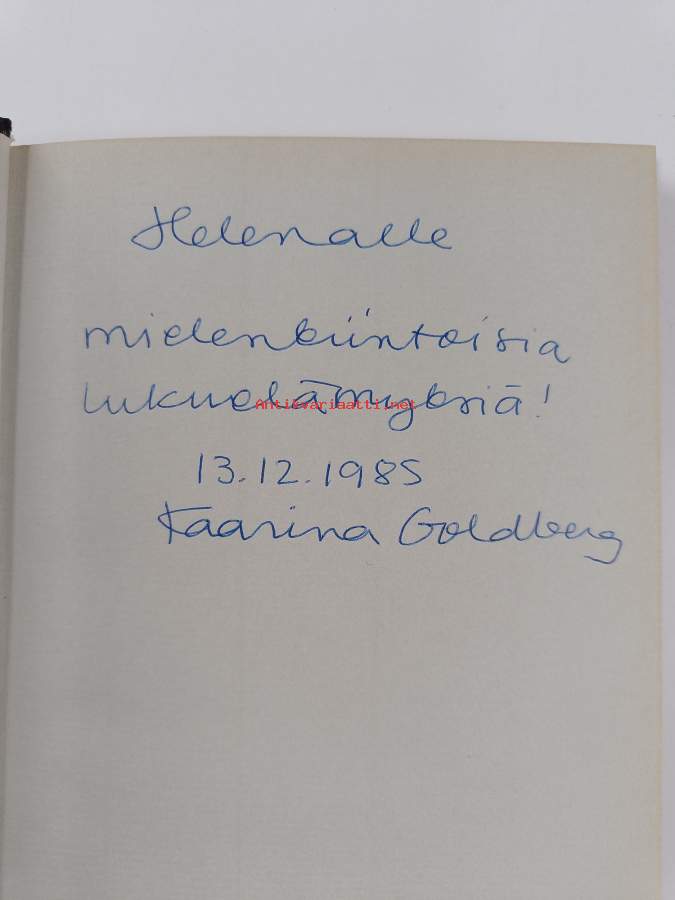 Helenalle
mielenkiintoisia
lukuelämyksiä!
Antikvariaatti.net
13.12.1985
Kaarina Goldberg